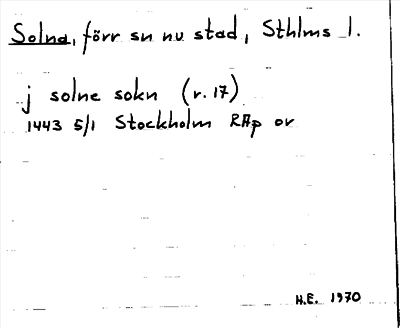 Solna, förr sn nu stad, Sthlms l.
j solne sokn (r. 17)
1443 5/1 Stockholm RAp or
H.E. 1970